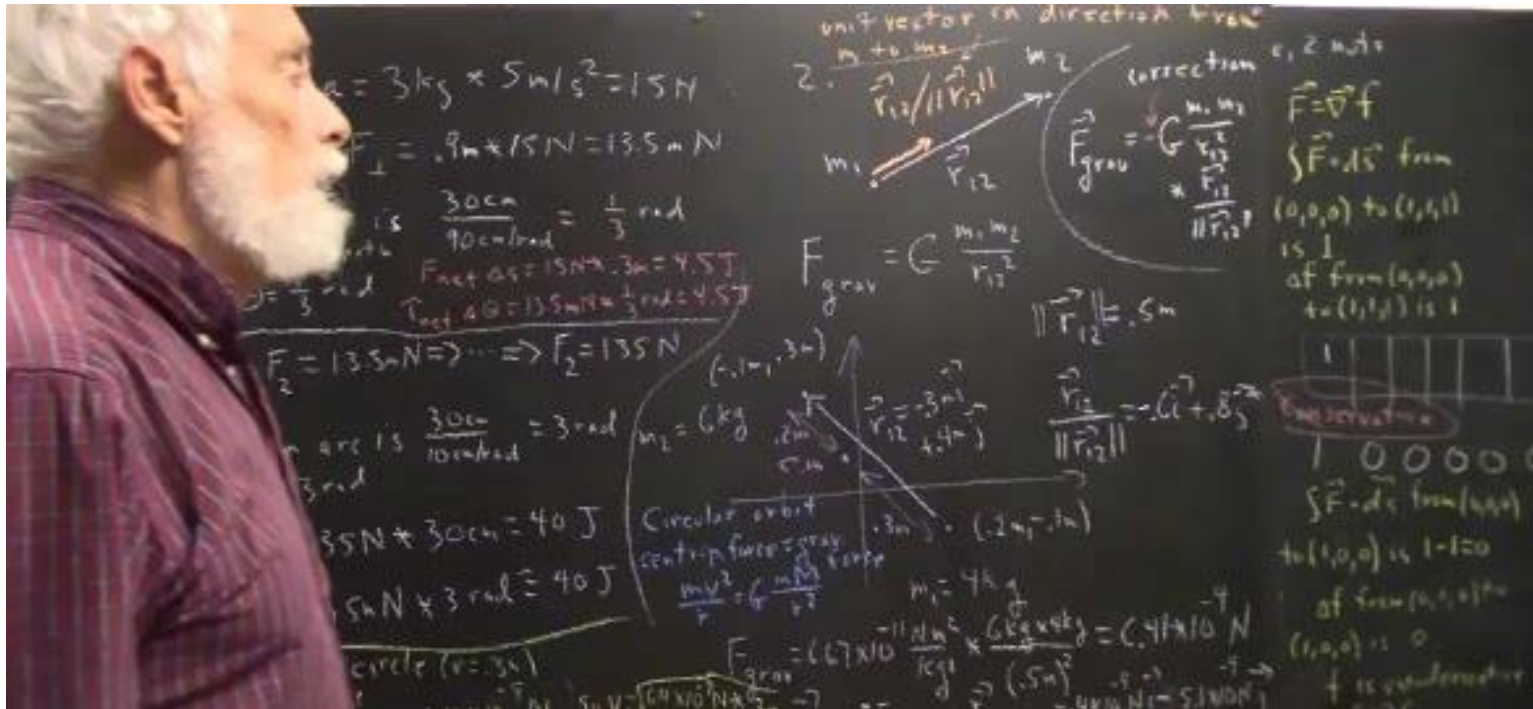 a = 3kg * 5m/s² = 15N
= .9m * 15N = 13.5m N
is 30cm / 90cm/rad = 1/3 rad
F_net Δs = 15N * .3m = 4.5J
1/3 rad
τ_net Δθ = 13.5mN * 1/3 rad = 4.5J
F₂ = 13.5mN => ... => F₂ = 135N
arc is 30cm / 10cm/rad = 3 rad
3 rad
35N * 30cm = 40J
5mN * 3 rad = 40J
circle (r = .3
unit vector in direction from
m₁ to m₂
2.
r₁₂/||r₁₂||
m₂
m₁
r₁₂
correction
F_grav = -G m₁m₂/r₁₂²
* r₁₂/||r₁₂||
F_grav = G m₁m₂/r₁₂²
||r₁₂|| = .5m
(-.1m, .3m)
m₂ = 6kg
r₁₂ = -.3m i
+.4m j
r₁₂/||r₁₂|| = -.6i + .8j
.3m
(.2m, -.1m)
Circular orbit
centrip force = grav
force
mv²/r = G mM/r²
m₁ = 4kg
F_grav = 6.67*10⁻¹¹ Nm²/kg² * 6kg*4kg/(.5m)² = 6.4*10⁻⁹ N
F = ∇f
∫F·ds from
(0,0,0) to (1,1,1)
is 1
Δf from (0,0,0)
to (1,1,1) is 1
1
Conservative
1 0 0 0 0
∫F·ds from (0,0,0)
to (1,0,0) is 1-1=0
Δf from (0,0,0) to
(1,0,0) is 0
f is